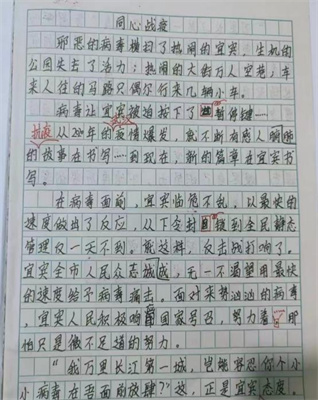 同心战疫
邪恶的病毒横扫了热闹的宜宾，生机的
公园失去了活力；热闹的大街万人空巷；车
来人往的马路只偶尔行来几辆小车。
病毒让宜宾被迫按下了暂停键……
抗疫
从20年的疫情爆发，就不断有感人
的故事在书写……到现在，新的篇章在宜宾书
写。
在病毒面前，宜宾临危不乱，以最快的
速度做出了反应，从下令封到全民静态
管理仅一天不到。就这样，反击战打响了。
宜宾全市人民众志成城，无一不渴望用最快
的速度给予病毒痛击。面对来势汹汹的病毒
，宜宾人民积极响国家号召，努力着，那
怕只是微不足道的努力。
“我万里长江第一城，岂能容忍你个小
小病毒在吾面前放肆？”这，正是宜宾态度。